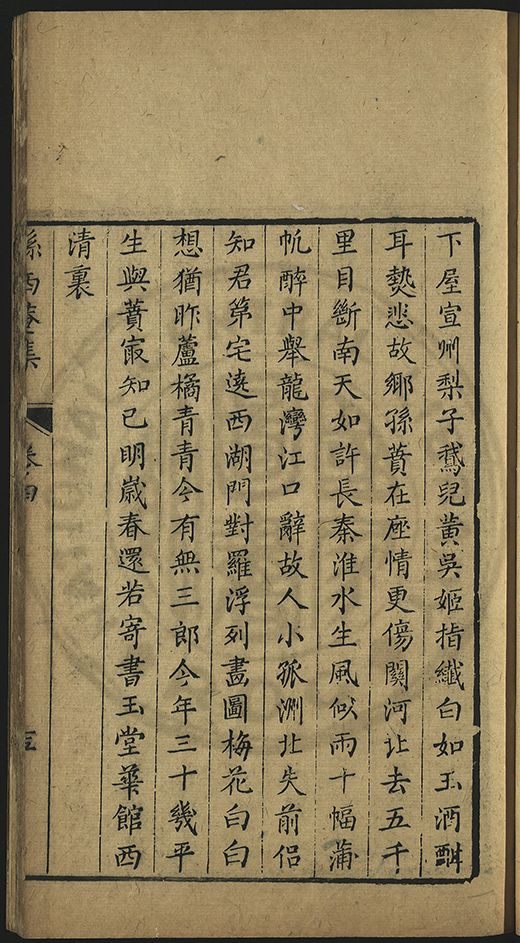 下屋宣州梨子鵞兒黄吳姬指纖白如玉酒酣
耳熱悲故鄉孫蕡在座情更傷關河北去五千
里目斷南天如許長秦淮水生風似雨十幅蒲
帆醉中舉龍灣江口辭故人小孤洲北失前侶
知君第宅遶西湖門對羅浮列畫圖梅花白白
想猶昨蘆橘青青今有無三郎今年三十幾平
生與蕡㝡知已明嵗春還若寄書玉堂華館西
清裏
孫西菴集
卷四